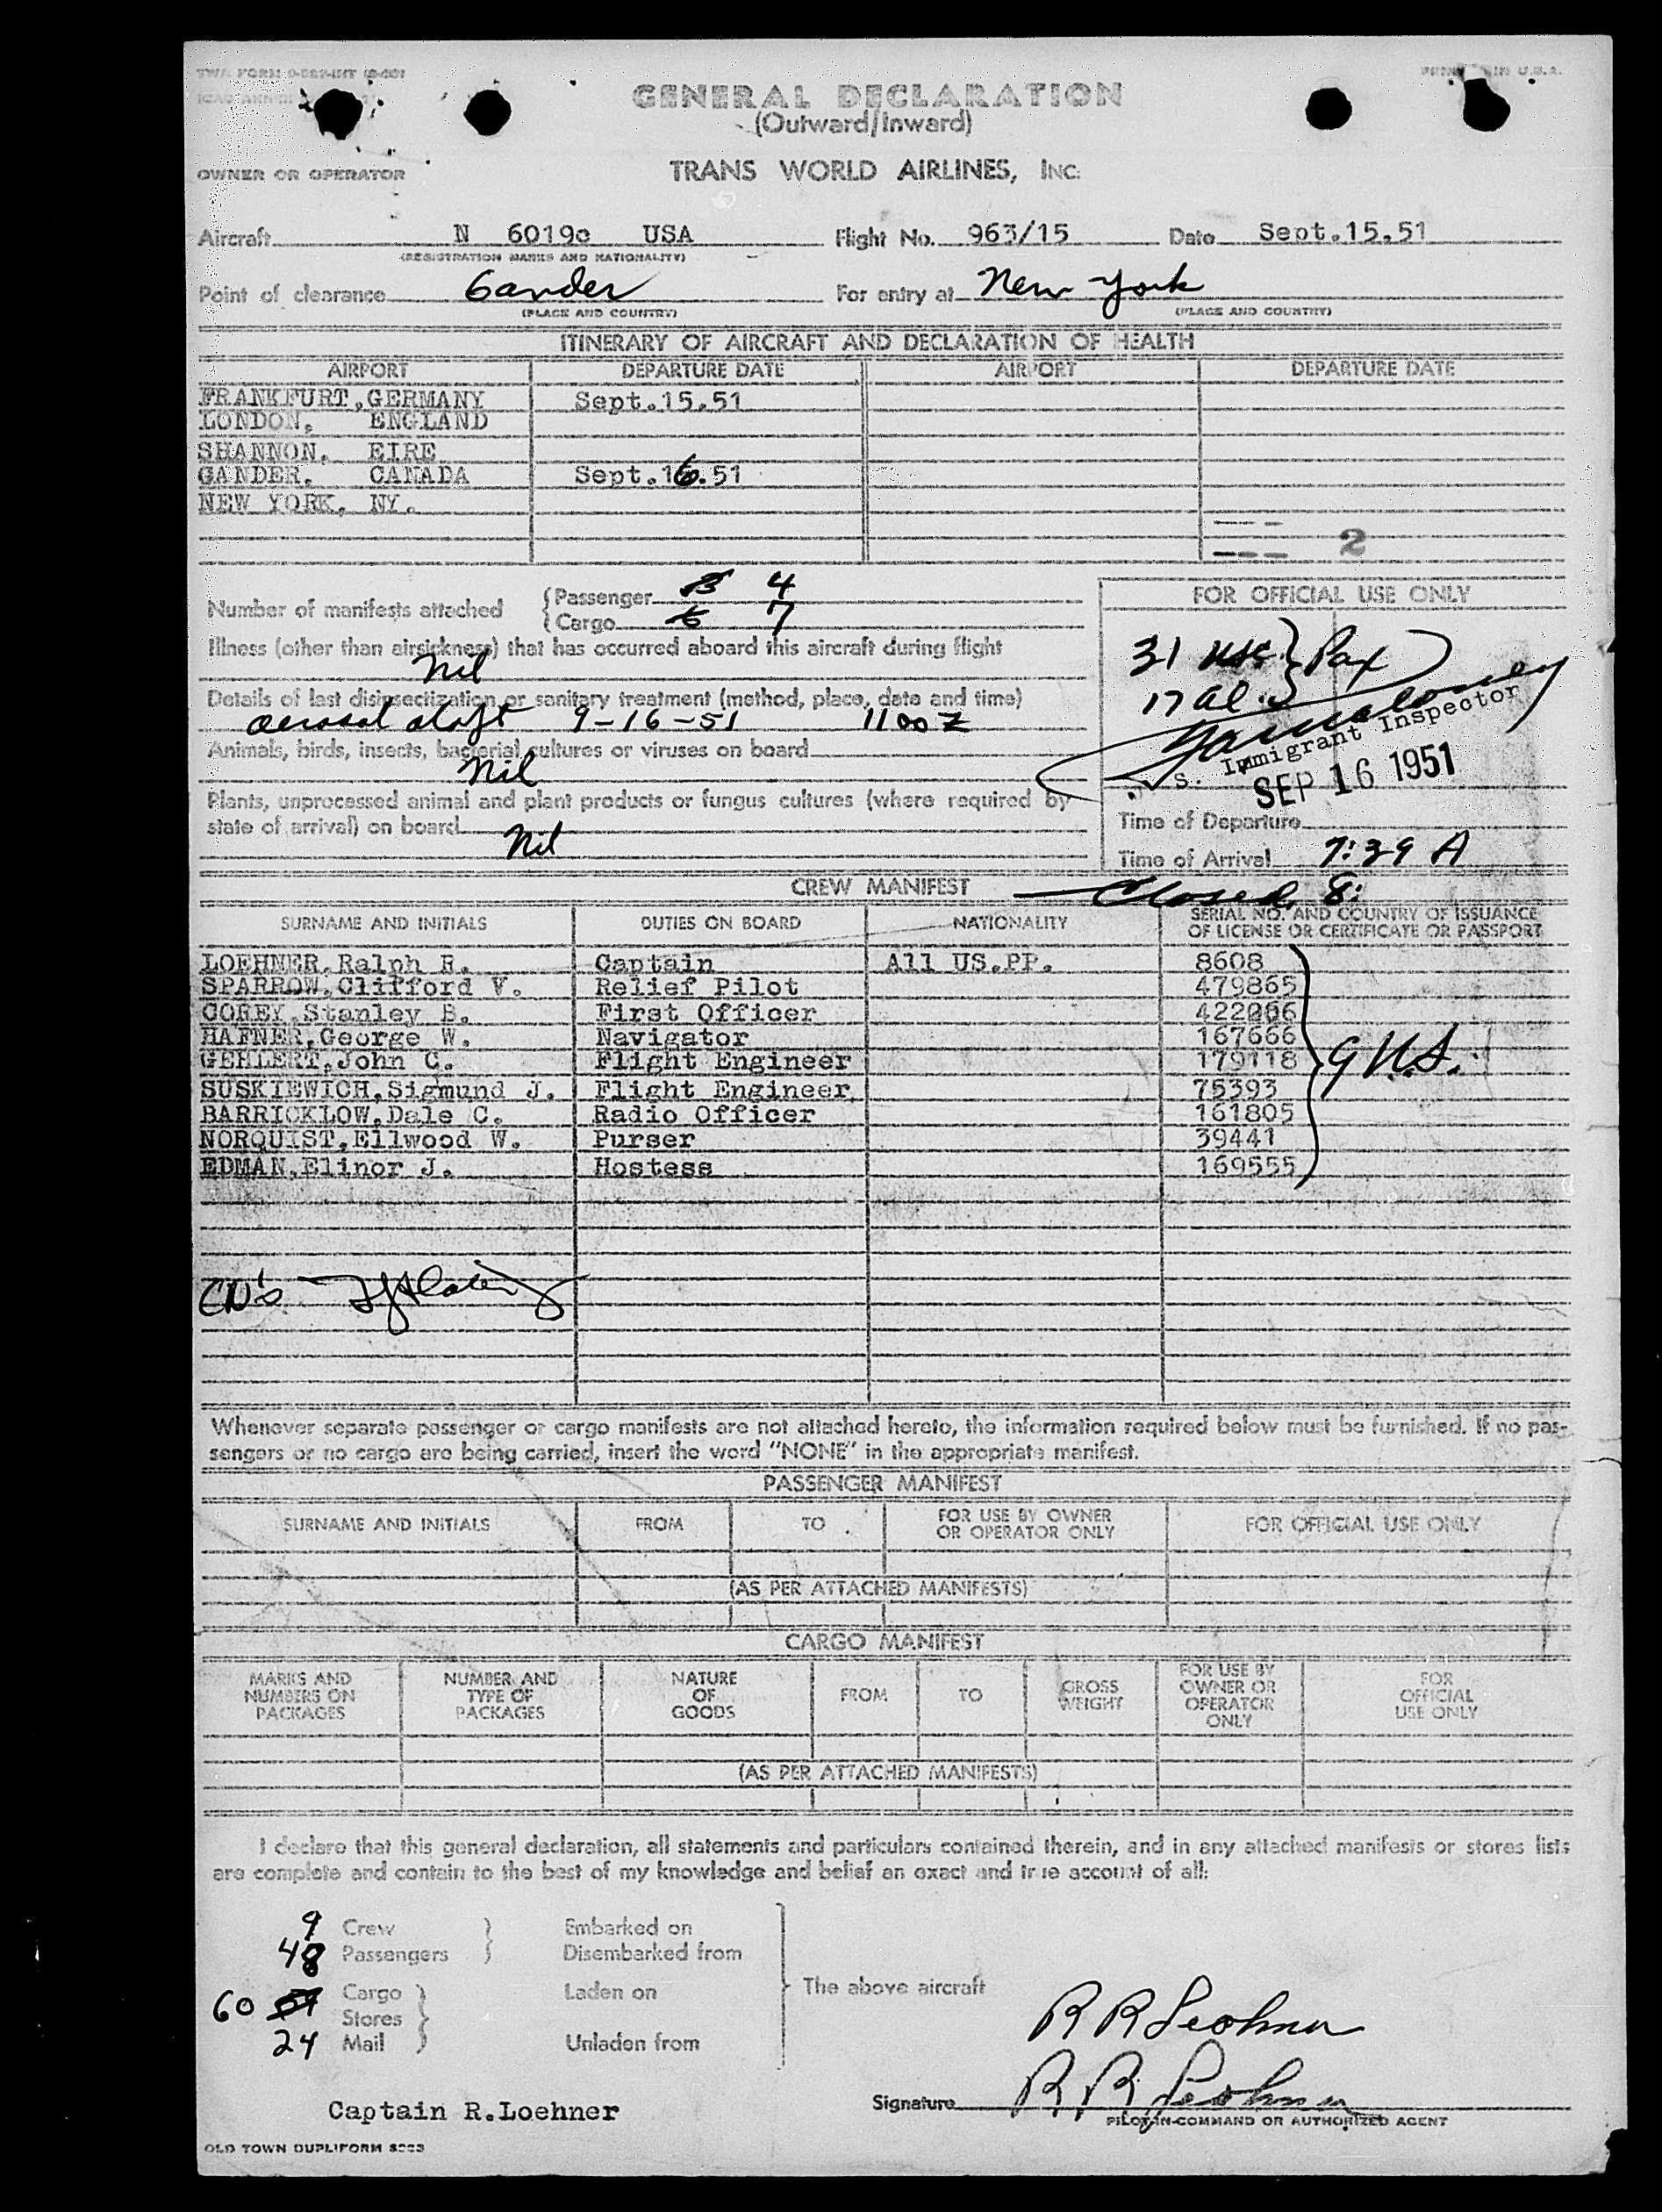 TWA FORM
PRINTED IN U.S.A.
GENERAL DECLARATION
(Outward/Inward)
OWNER OR OPERATOR
TRANS WORLD AIRLINES, INC.
Aircraft N 6019c USA Flight No. 963/15 Date Sept.15.51
(REGISTRATION MARKS AND NATIONALITY)
Point of clearance Gander For entry at New York
(PLACE AND COUNTRY) (PLACE AND COUNTRY)
ITINERARY OF AIRCRAFT AND DECLARATION OF HEALTH
AIRPORT DEPARTURE DATE AIRPORT DEPARTURE DATE
FRANKFURT,GERMANY Sept.15.51
LONDON, ENGLAND
SHANNON, EIRE
GANDER, CANADA Sept.16.51
NEW YORK, NY.
2
Number of manifests attached
Passenger 3 4
Cargo 6 7
Illness (other than airsickness) that has occurred aboard this aircraft during flight
Nil
Details of last disinsectization or sanitary treatment (method, place, date and time)
aerosol aloft 9-16-51 1100 Z
Animals, birds, insects, bacterial cultures or viruses on board
Nil
Plants, unprocessed animal and plant products or fungus cultures (where required by
state of arrival) on board
Nil
FOR OFFICIAL USE ONLY
31 USC } Pax
17 al.
U. S. Immigrant Inspector
SEP 16 1951
Time of Departure
Time of Arrival 7:39 A
Closed 8:
CREW MANIFEST
SURNAME AND INITIALS DUTIES ON BOARD NATIONALITY SERIAL NO. AND COUNTRY OF ISSUANCE
OF LICENSE OR CERTIFICATE OR PASSPORT
LOEHNER,Ralph R. Captain All US.PP. 8608
SPARROW,Clifford V. Relief Pilot 479865
COREY,Stanley B. First Officer 422006
HAFNER,George W. Navigator 167666
GEHLERT,John C. Flight Engineer 179118
9 U.S.
SUSKIEWICH,Sigmund J. Flight Engineer 75393
BARRICKLOW,Dale C. Radio Officer 161805
NORQUIST,Ellwood W. Purser 39441
EDMAN,Elinor J. Hostess 169555
Whenever separate passenger or cargo manifests are not attached hereto, the information required below must be furnished. If no pas-
sengers or no cargo are being carried, insert the word "NONE" in the appropriate manifest.
PASSENGER MANIFEST
SURNAME AND INITIALS FROM TO FOR USE BY OWNER
OR OPERATOR ONLY FOR OFFICIAL USE ONLY
(AS PER ATTACHED MANIFESTS)
CARGO MANIFEST
MARKS AND
NUMBERS ON
PACKAGES
NUMBER AND
TYPE OF
PACKAGES
NATURE
OF
GOODS
FROM
TO
GROSS
WEIGHT
FOR USE BY
OWNER OR
OPERATOR
ONLY
FOR
OFFICIAL
USE ONLY
(AS PER ATTACHED MANIFESTS)
I declare that this general declaration, all statements and particulars contained therein, and in any attached manifests or stores lists
are complete and contain to the best of my knowledge and belief an exact and true account of all:
9 Crew Embarked on
48 Passengers Disembarked from
60 Cargo Laden on The above aircraft
Stores
24 Mail Unladen from
R R Loehner
Captain R.Loehner
Signature R. R. Loehner
PILOT-IN-COMMAND OR AUTHORIZED AGENT
OLD TOWN DUPLIFORM